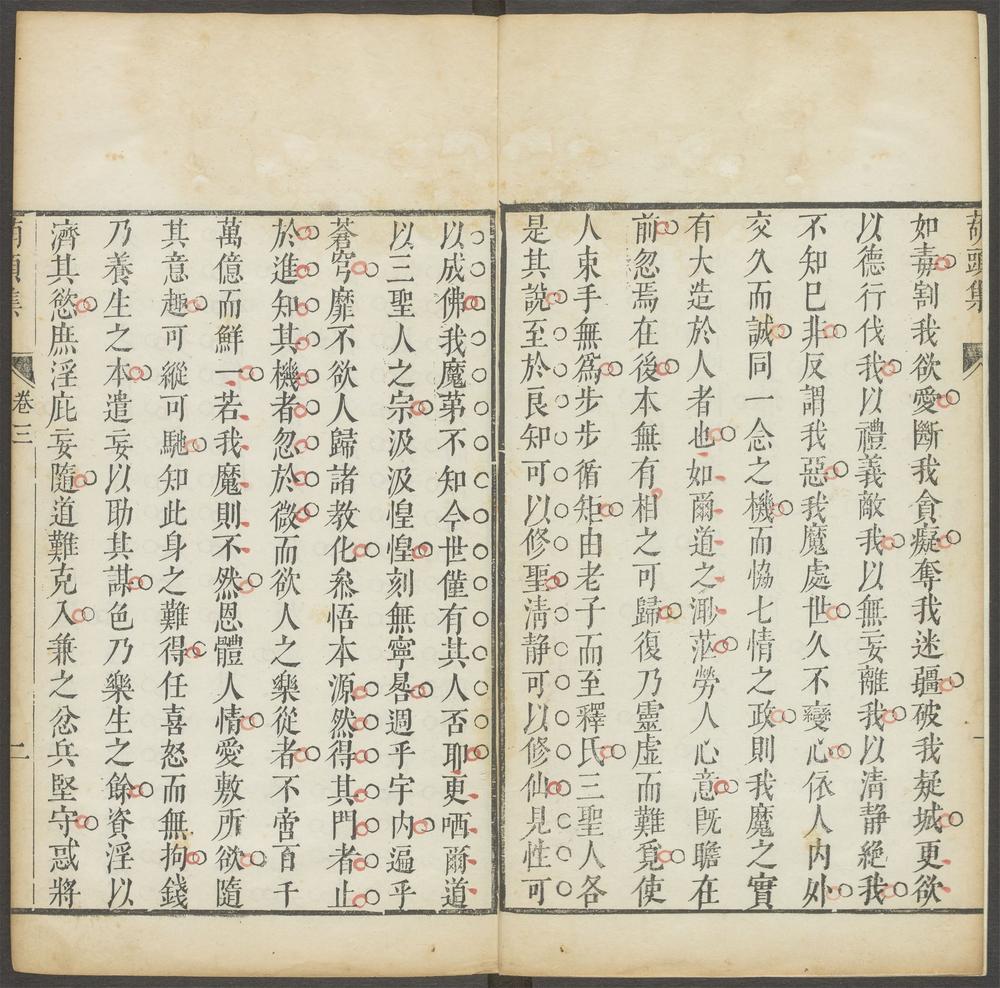 如毒割我欲愛斷我貪癡奪我迷疆破我疑城更欲
以德行伐我以禮義敵我以無妄離我以清靜絕我
不知巳非反謂我惡我魔處世久不變心依人內外
交久而誠同一念之機而恊七情之政則我魔之實
有大造於人者也如爾道之渺茫勞人心意旣瞻在
前忽焉在後本無有相之可歸復乃靈虛而難覓使
人束手無爲步步循矩由老子而至釋氏三聖人各
是其說至於良知可以修聖清靜可以修仙見性可
以成佛我魔苐不知今世僅有其人否耶更哂爾道
以三聖人之宗汲汲惶惶刻無寧晷週乎宇內遍乎
蒼穹靡不欲人歸諸教化叅悟本源然得其門者止
於進知其機者忽於微而欲人之樂從者不啻百千
萬億而鮮一若我魔則不然恩體人情愛敷所欲隨
其意趣可縱可馳知此身之難得任喜怒而無拘錢
乃養生之本遣妄以助其謀色乃樂生之餘資淫以
濟其慾庶淫庇妄隨道難克入兼之忿兵堅守惑將
卷三
二